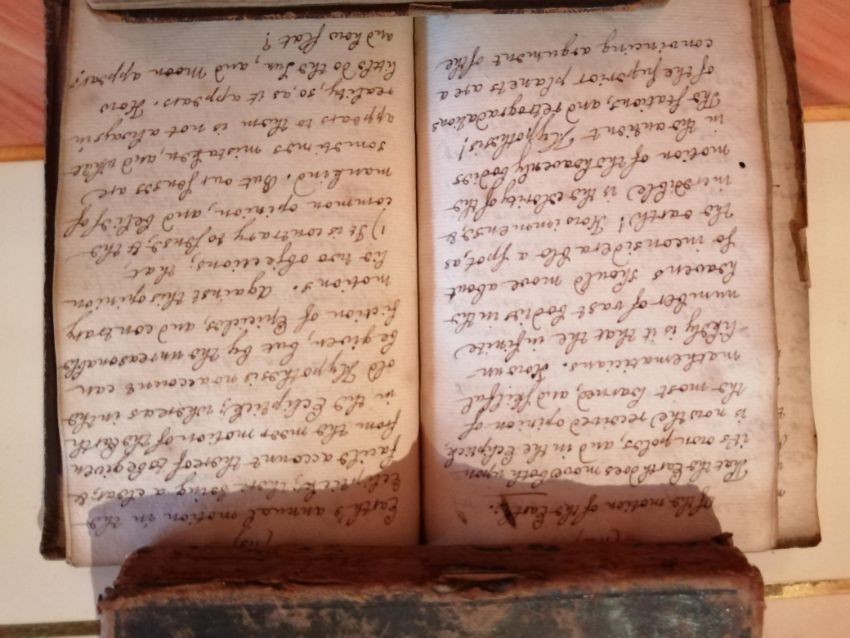 Of the motion of the Earth:
That the Earth does move both upon
it's own poles, and in the Ecliptick,
is now the received opinion of
the most learned, and skilful
mathematicians. How un
likely is it that the infinite
number of vast bodies in the
heavens should move about
so inconsiderable a spot, as
the earth! How immense, &
incredible is the celerity of the
motion of the heavenly bodies
in the antient Hypothesis!
The stations, and retrogradations
of the superior planets are a
convincing argument of the
Earth's annual motion in the
Ecliptick; there being a clear, &
facile account thereof to be given
from the meer motion of the Earth
in the Ecliptick; whereas in the
old Hypothesis no account can
be given, but by the unreasonable
fiction of Epicicles, and contrary
motions. Against this opinion
lie two objections; that,
1) It is contrary to sense, & the
common opinion, and belief of
mankind. But our senses are
sometimes mistaken, and what
appears to them is not always in
reality, so, as it appears. How
little do the Sun, and Moon appear?
and how flat?